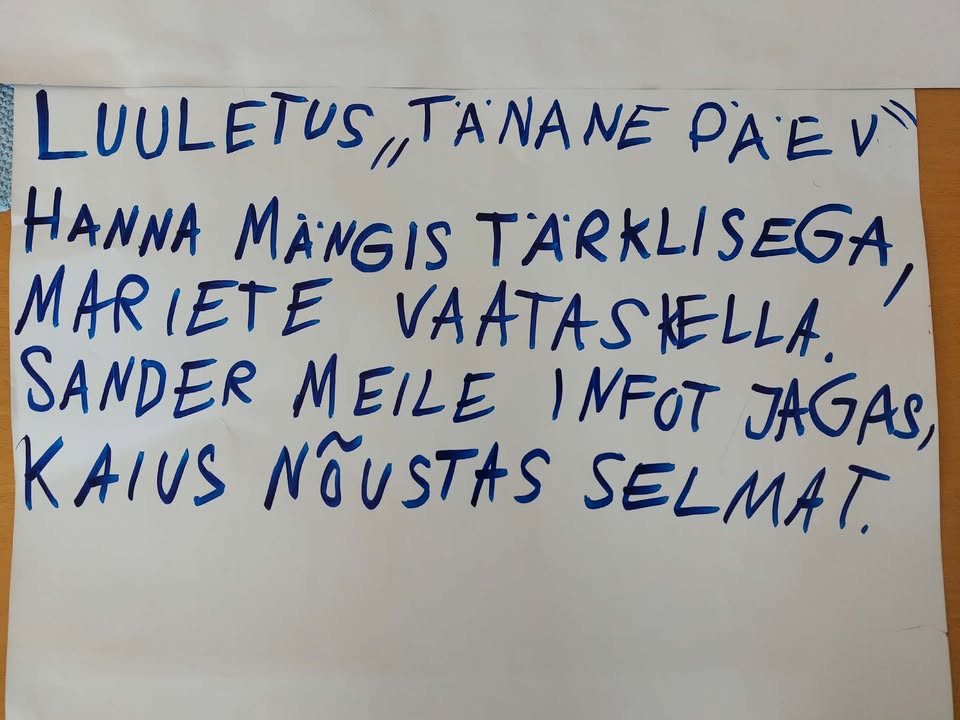 LUULETUS „TÄNANE PÄEV"
HANNA MÄNGIS TÄRKLISEGA,
MARIETE VAATAS KELLA.
SANDER MEILE INFOT JAGAS,
KAIUS NÕUSTAS SELMAT.